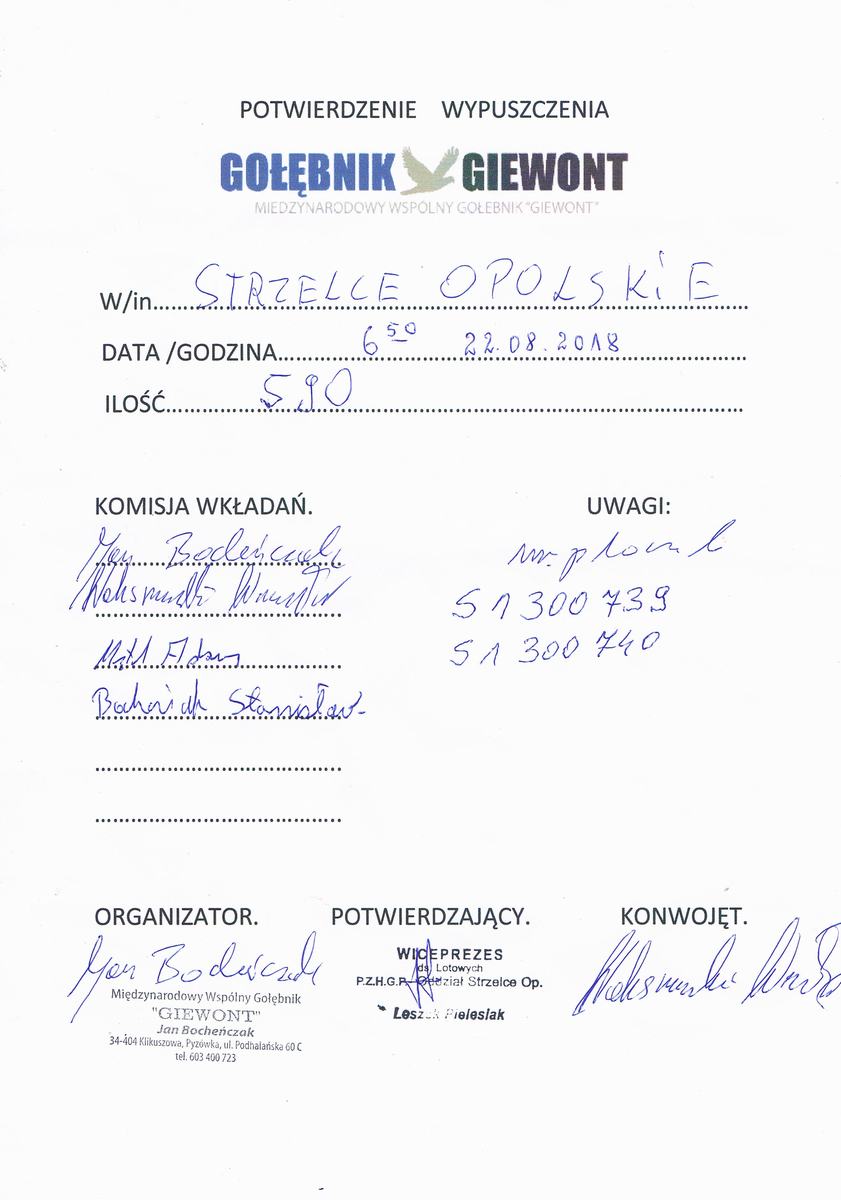 POTWIERDZENIE WYPUSZCZENIA
GOŁĘBNIK GIEWONT
MIEDZYNARODOWY WSPÓLNY GOŁEBNIK "GIEWONT"
W/in. STRZELCE OPOLSKIE
DATA /GODZINA. 6 50 22.08.2018
ILOŚĆ. 590
KOMISJA WKŁADAŃ. UWAGI:
Jan Bocheńczak nr. plomb
S1 300 739
S1 300 740
Adam
Stanisław
ORGANIZATOR. POTWIERDZAJĄCY. KONWOJĘT.
Jan Bocheńczak
WICEPREZES
ds. Lotowych
P.Z.H.G.P. Oddział Strzelce Op.
Leszek Pielesiak
Międzynarodowy Wspólny Gołębnik
"GIEWONT"
Jan Bocheńczak
34-404 Klikuszowa, Pyzówka, ul. Podhalańska 60 C
tel. 603 400 723